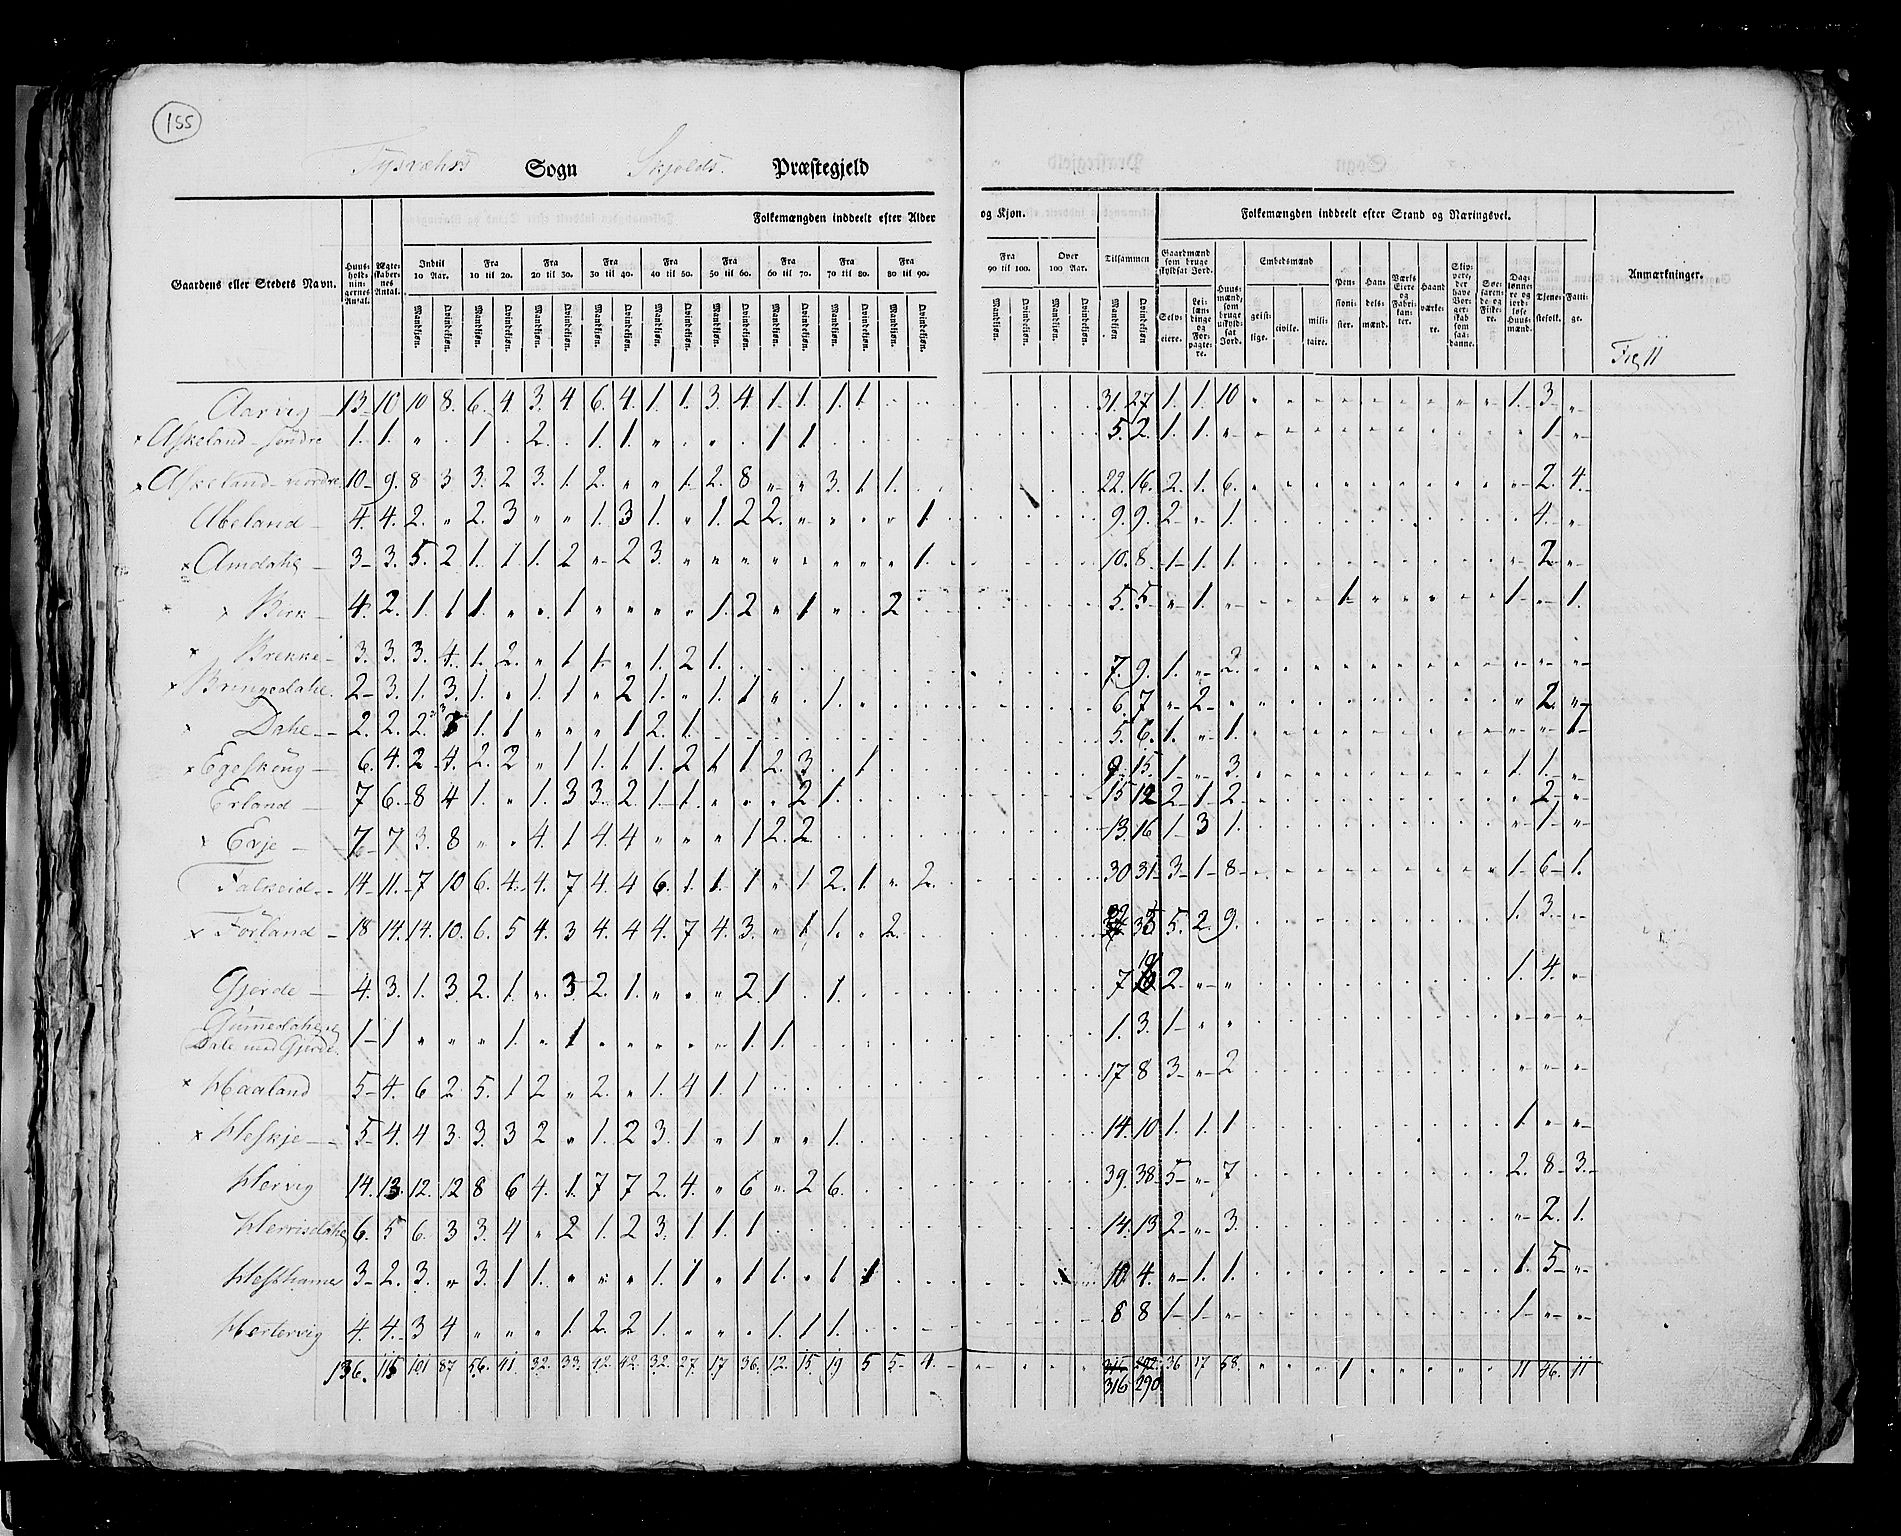 155
Tysvæhrs Sogn Skjolds Præstegjeld
Folkemængden inddeelt efter Alder og Kjøn. Folkemængden inddeelt efter Stand og Næringsvei.
Gaardens eller Stedets Navn. Huus-hold-nin-gernes Antal. Ægte-skaber-nes Antal. Indtil 10 Aar. Fra 10 til 20. Fra 20 til 30. Fra 30 til 40. Fra 40 til 50. Fra 50 til 60. Fra 60 til 70. Fra 70 til 80. Fra 80 til 90. Fra 90 til 100. Over 100 Aar. Tilsammen Gaardmænd som bruge skyldsat Jord. Huus-mænd, som bruge uskyld-sat Jord. Embedsmænd Pen-sioni-ster. Han-dels-mænd. Værks Eiere og Fabri-kan-ter. Haand værke-re. Skip-pere, der have Bor-ger-skab som saa-danne. Søe-faren-de og Fiske-re. Dag-lønne-re og jord-løse Huus-mænd. Tjene-stefolk. Fatti-ge. Anmærkninger.
Mandkjøn. Qvindekjøn. Mandkjøn. Qvindekjøn. Mandkjøn. Qvindekjøn. Mandkjøn. Qvindekjøn. Mandkjøn. Qvindekjøn. Mandkjøn. Qvindekjøn. Mandkjøn. Qvindekjøn. Mandkjøn. Qvindekjøn. Mandkjøn. Qvindekjøn. Mandkjøn. Qvindekjøn. Mandkjøn. Qvindekjøn. Mandkjøn Qvindekjøn. Selv-eiere. Lei-læn-dinge og For-pagte-re. geist-lige. civille. mili-taire.
Aarvig 13 10 10 8 6 4 3 4 6 4 1 1 3 4 1 1 1 1 31 27 1 1 10 1 3
Askeland søndre 1 1 " 1 2 1 1 " " 1 1 5 2 1 1 " 1 "
Askeland nordre 10 9 8 3 3 2 3 1 2 " " 1 2 8 " " 3 1 1 22 16 2 1 6 " 2 4
Apeland 4 4 2 " 2 3 " " 1 3 1 " 1 2 2 " " " " 1 9 9 2 " 1 4 "
Amdahl 3 3 5 2 1 1 1 2 " 2 3 " " " " " " " " 1 10 8 1 1 1 " 2 "
Birk 4 2 1 1 1 " " 1 " " " " 1 2 " 1 " 2 5 5 " 1 " 1 1 " 1
Brekke 3 3 3 4 1 2 " 1 1 " 1 2 1 7 9 1 " 2 " " "
Bringedahl 2 3 1 3 1 " 1 1 " 2 1 " 1 1 " 1 6 7 " 2 " " 2 "
Dahle 2 2 2 1 1 " " " 1 2 1 5 6 1 " 1 " " 1
Egeskoug 6 4 2 4 2 2 " 1 1 1 1 2 1 1 2 3 1 9 15 1 " 3 1 1 "
Erland 7 6 8 4 1 " 1 3 3 2 1 1 " " " 2 1 15 12 2 1 2 " 2 "
Erje 7 7 3 8 " " 4 1 4 4 " " " 1 2 2 13 16 1 3 1 " 1 "
Falkeid 14 11 7 10 6 4 4 7 4 4 6 1 1 1 " 1 2 1 " 2 30 31 3 1 8 1 6 1
Førland 18 14 14 10 6 5 4 3 4 4 4 7 4 3 " 1 1 " 2 5 2 9 1 3 "
Gjerde 4 3 1 3 2 1 " 3 2 1 " " " 2 1 1 7 10 2 " " 1 4 "
Dale med Gjerde 1 1 " " " 1 " 1 " " " " " 1 1 1 3 1 " " " " "
Haaland 5 4 6 2 5 1 2 " 2 " 1 4 1 1 17 8 3 " 2 " " "
Heskje 5 4 4 3 3 3 2 " 1 2 3 1 " 1 " " 1 14 10 1 1 1 1 " "
Hervig 14 13 12 12 8 6 4 1 7 7 2 4 " 6 " 2 6 39 38 5 " 7 2 8 3
Hervisdahl 6 5 6 3 3 4 " 2 1 2 3 1 1 1 14 13 2 " 3 " 2 1
Hesthamer 3 2 3 " 3 1 1 " " " 1 1 " 1 1 " 1 1 10 4 " 1 1 1 5 "
Hertervig 4 4 3 4 " " " 1 2 2 1 " " " 1 1 1 8 8 1 1 " 1 " "
136 115 101 87 56 41 32 33 42 42 32 27 17 36 12 15 19 5 5 4 36 17 58 1 11 46 11
316 290